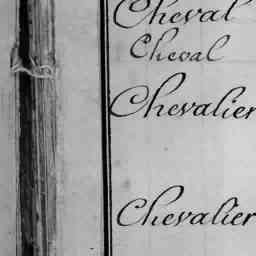 Cheval
Cheval
Chevalier
Chevalier